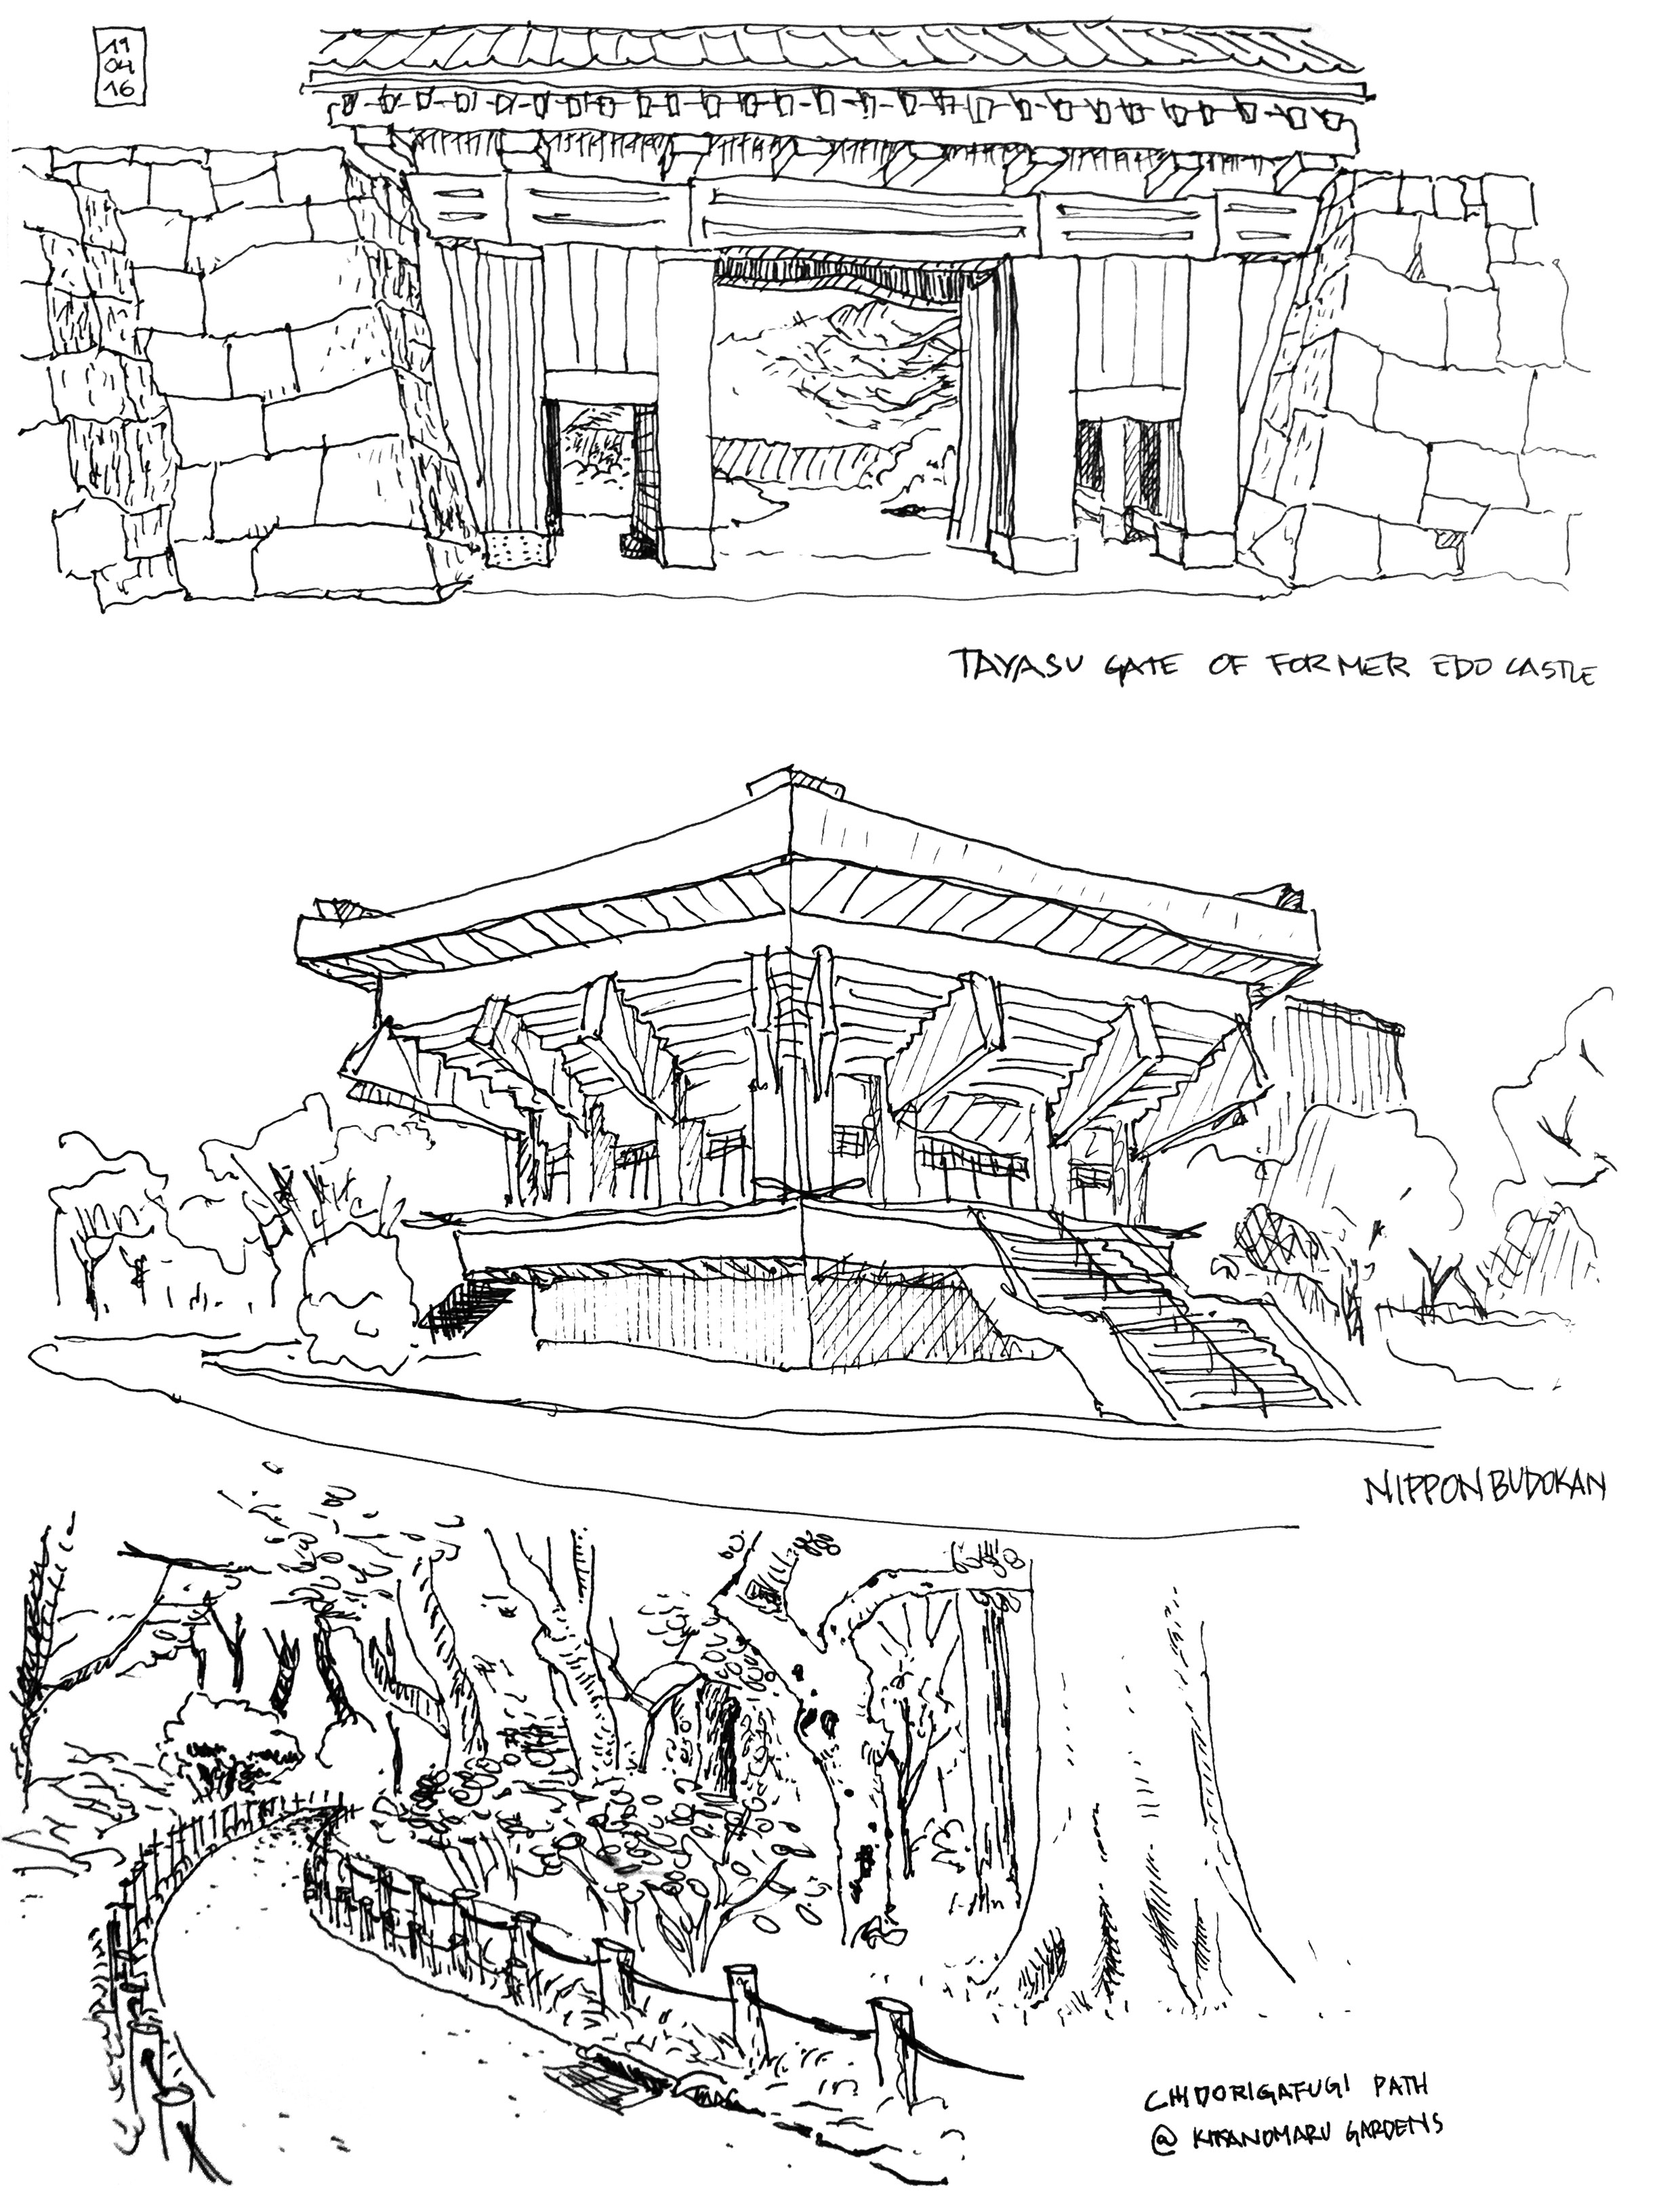 19
04
16
TAYASU GATE OF FORMER EDO CASTLE
NIPPON BUDOKAN
CHIDORIGAFUGI PATH
@ KITANOMARU GARDENS